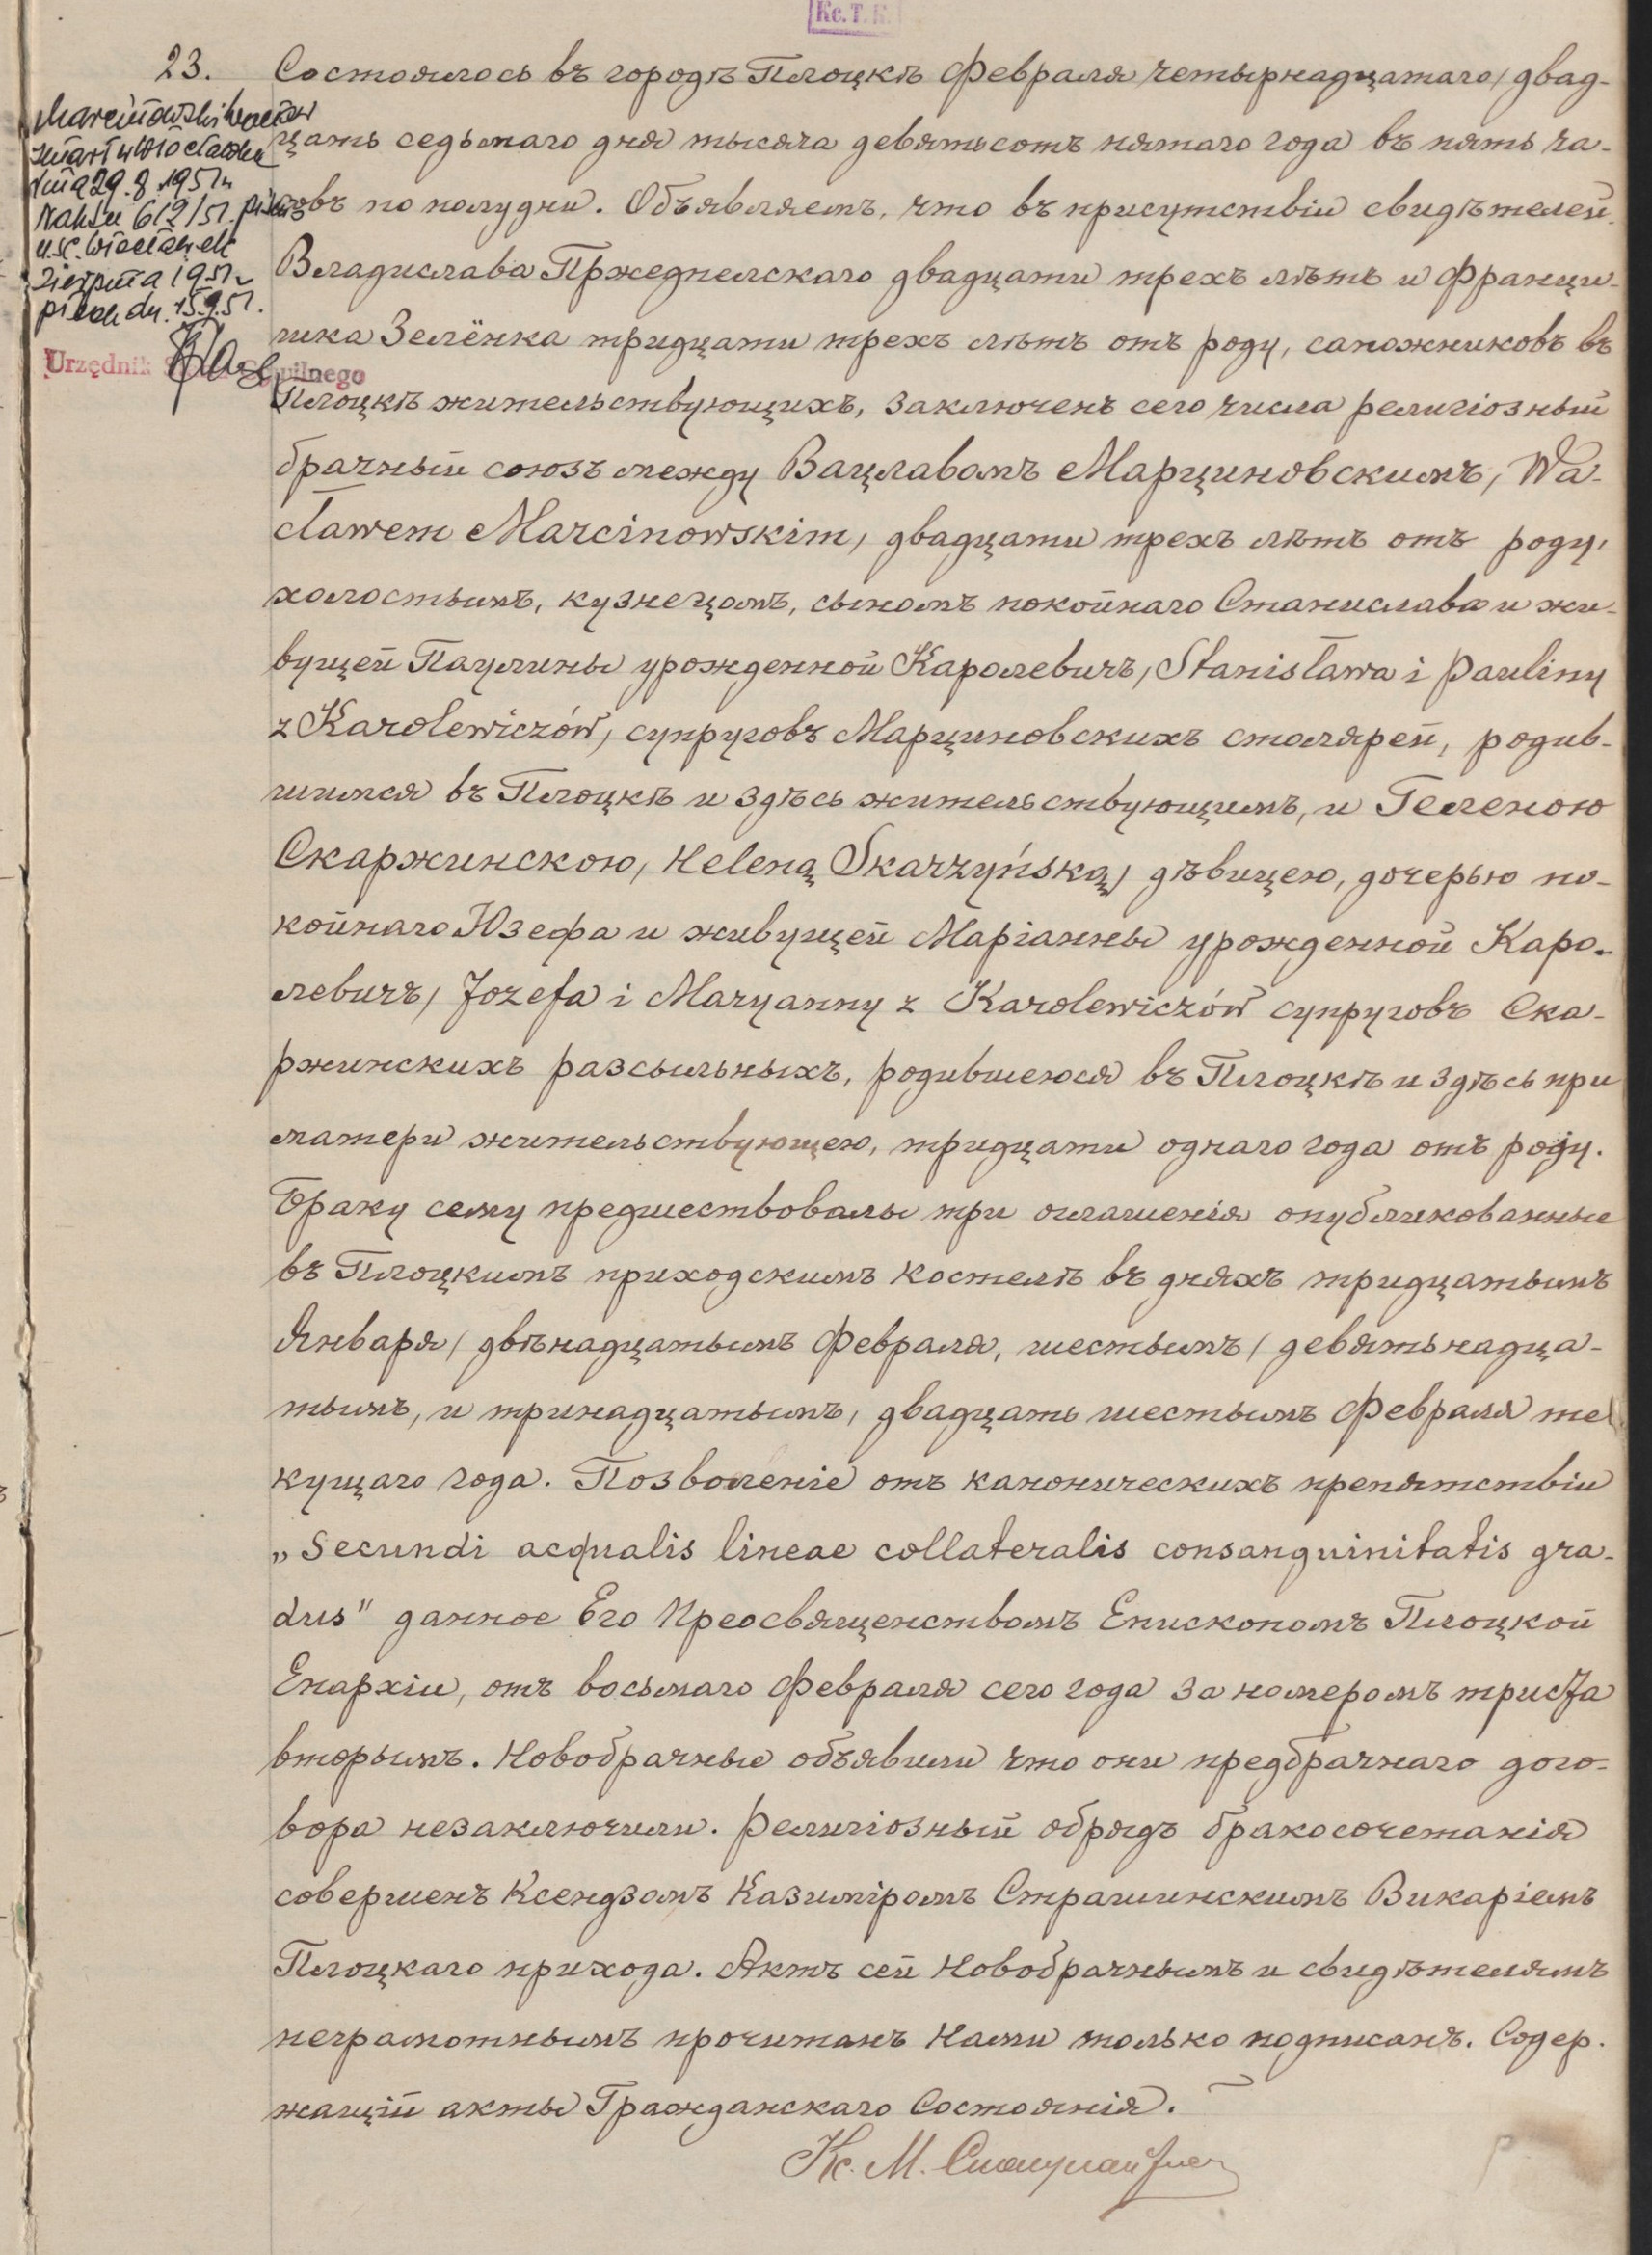 Кс. Т. К.
23.
Marcinowski Wacław
zmarł w Włocławku
dnia 29.8.1951 r.
Nr aktu 612/51.
U.S.C. Włocławek
sierpnia 1951 r.
Płock dn. 15.9.51.
Urzędnik Cywilnego
Состоялось въ городѣ Плоцкѣ Февраля четырнадцатаго / двад-
цать седьмаго дня тысяча девятьсотъ пятаго года въ пять ча-
совъ по полудни. Объявляемъ, что въ присутствіи свидѣтелей
Владислава Пржедпелскаго двадцати трехъ лѣтъ и Франци-
шка Зелёнка тридцати трехъ лѣтъ отъ роду, сапожниковъ въ
Плоцкѣ жительствующихъ, заключенъ сего числа религіозный
брачный союзъ между Вацлавомъ Марциновскимъ, / Wa-
cławem Marcinowskim, / двадцати трехъ лѣтъ отъ роду,
холостымъ, кузнецомъ, сыномъ покойнаго Станислава и жи-
вущей Паулины урожденной Каролевичъ, / Stanisława i Pauliny
z Karolewiczów, / супруговъ Марциновскихъ столярей, родив-
шимся въ Плоцкѣ и здѣсь жительствующимъ, и Геленою
Скаржинскою, / Heleną Skarżyńską, / дѣвицею, дочерью по-
койнаго Юзефа и живущей Маріанны урожденной Каро-
левичъ, / Jozefa i Maryanny z Karolewiczów супруговъ Ска-
ржинскихъ разсыльныхъ, родившеюся въ Плоцкѣ и здѣсь при
матери жительствующею, тридцати одного года отъ роду.
Браку сему предшествовалы три оглашенія опубликованные
въ Плоцкимъ приходскимъ костелѣ въ дняхъ тридцатымъ
Января / двѣнадцатымъ Февраля, шестымъ / девятьнадца-
тымъ, и тринадцатымъ, двадцать шестымъ Февраля те-
кущаго года. Позволеніе отъ каноническихъ препятствіи
„Secundi aequalis lineae collateralis consanguinitatis gra-
dus" данное Его Преосвященствомъ Епископомъ Плоцкой
Епархіи, отъ восьмаго Февраля сего года за номеромъ триста
вторымъ. Новобрачные объявили что они предбрачнаго дого-
вора незаключили. Религіозный обрядъ бракосочетанія
совершенъ Ксендзомъ Казиміромъ Страшинскимъ Викаріемъ
Плоцкаго прихода. Актъ сей Новобрачнымъ и свидѣтелямъ
неграмотнымъ прочитанъ Нами только подписанъ. Содер-
жащій акты Гражданскаго Состоянія.
Кс. М.